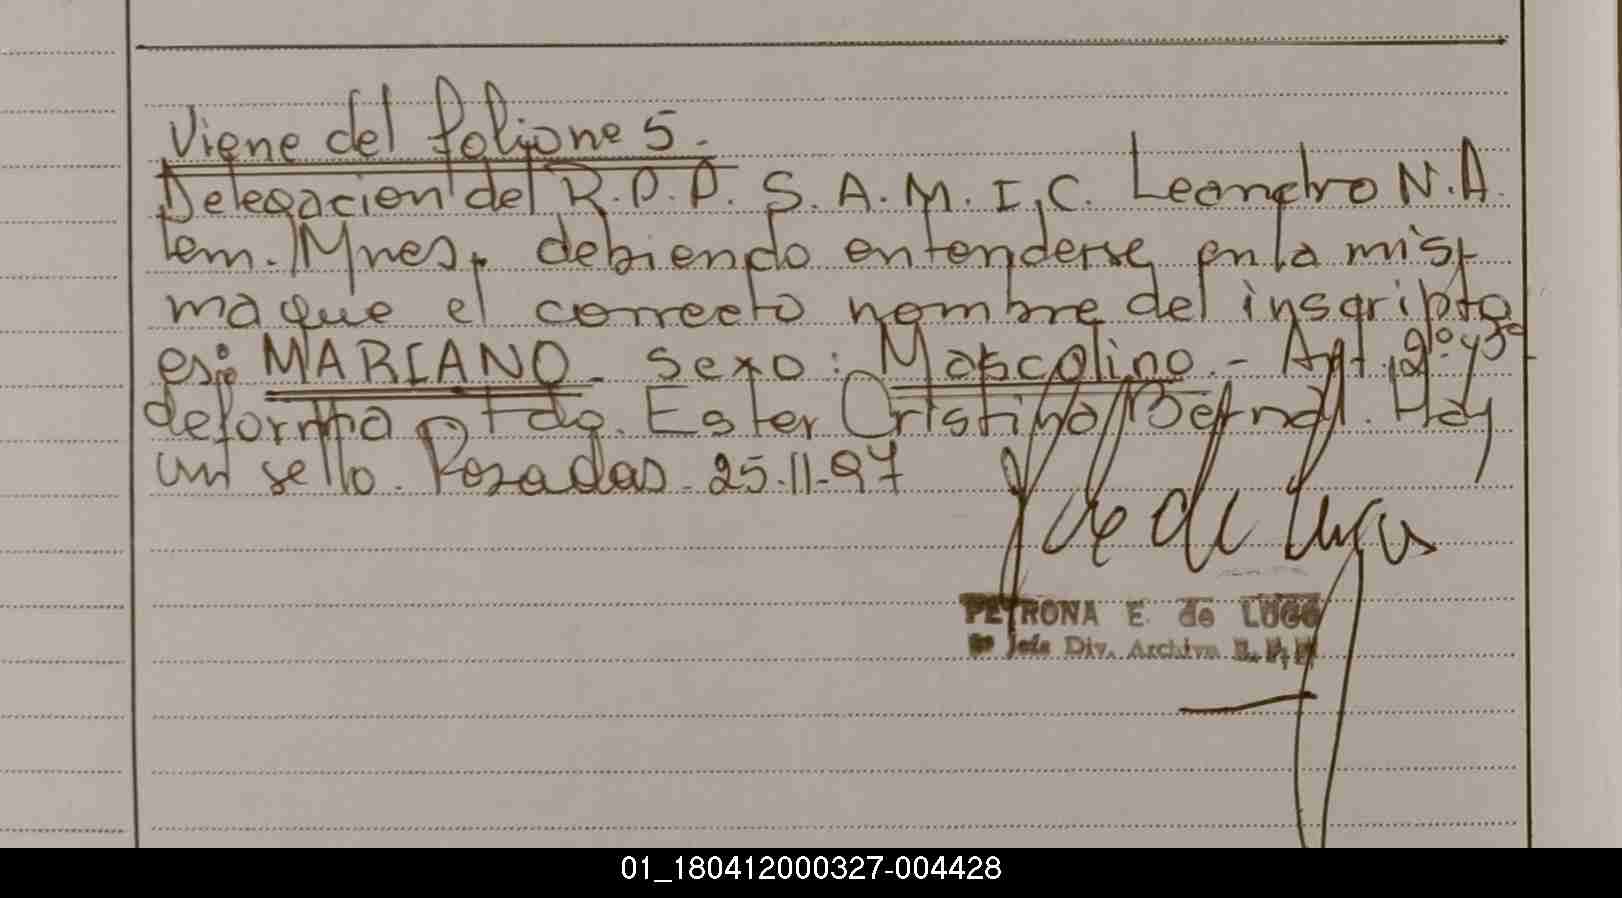 Viene del folio nº 5.
Delegacion del R.P.P. S.A.M.I.C. Leandro N.A
lem. Mnes, debiendo entenderse en la mis
ma que el correcto nombre del inscripto
es: MARIANO. Sexo: Mascolino.- Apt. 2º y 3º
de forma Fdo. Ester Cristina Bernal. Hay
un sello. Posadas. 25.11-97
PETRONA E. de LUGO
Jefe Div. Archivo R. P. P.
01_180412000327-004428